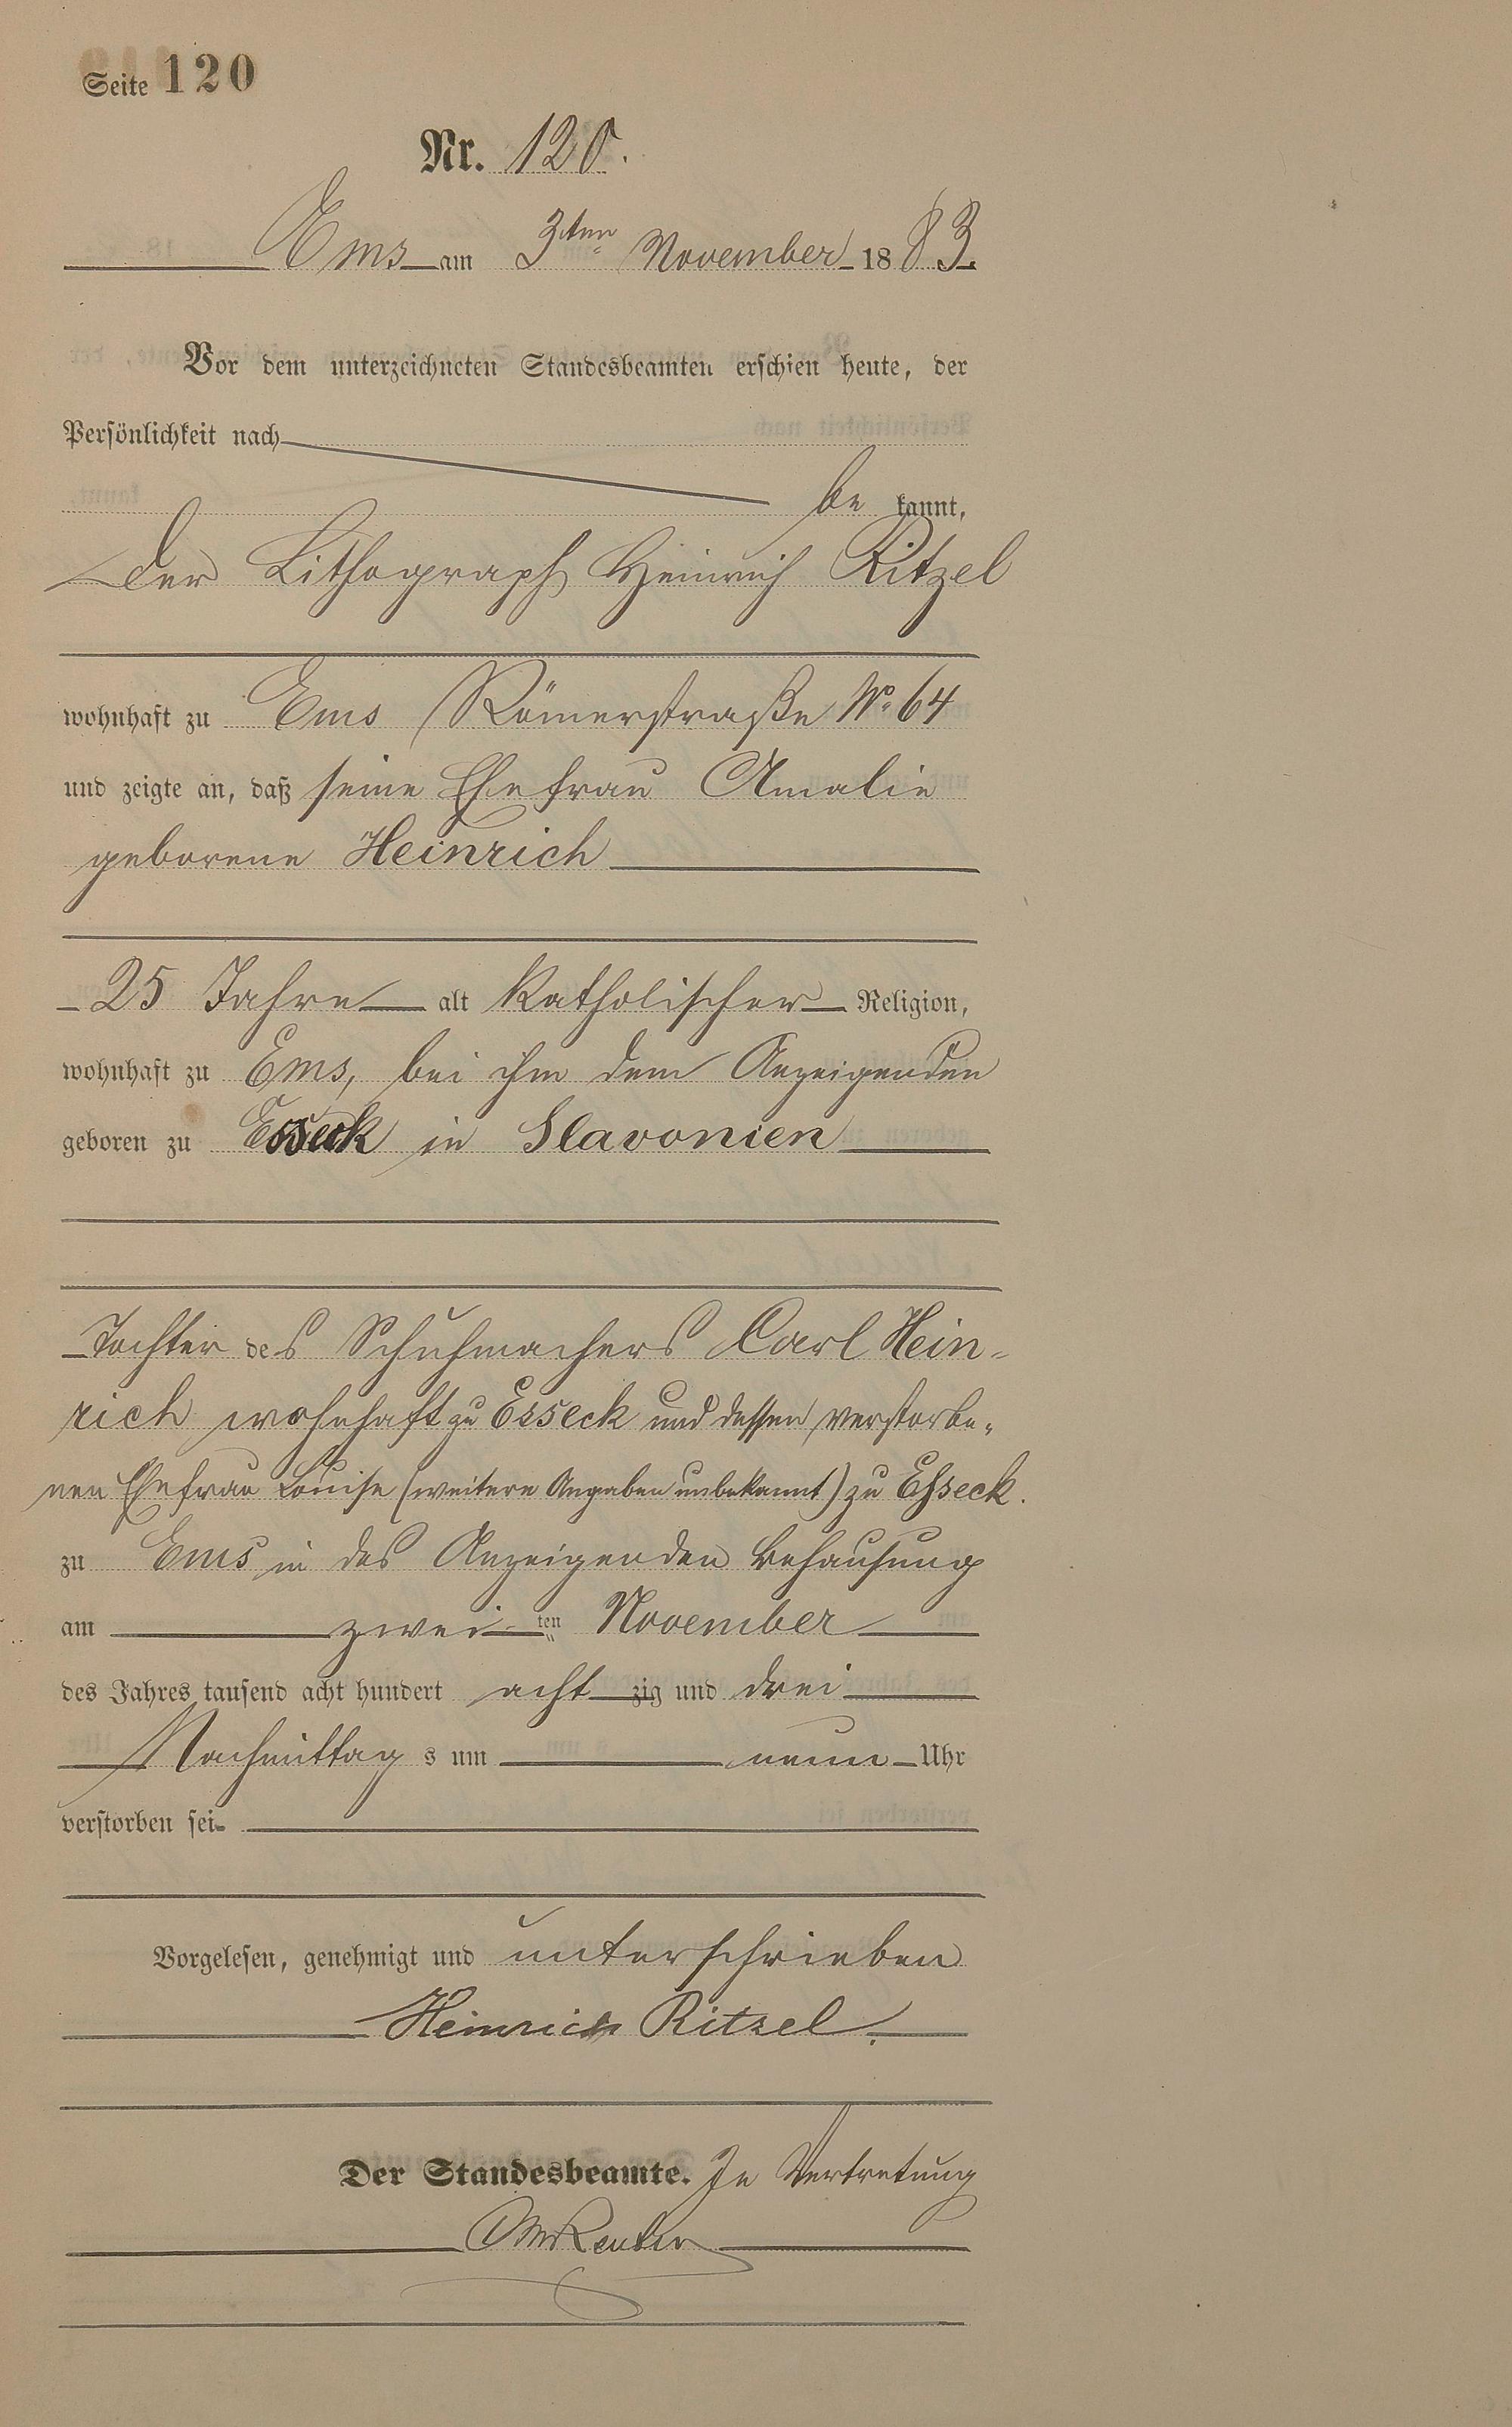 Seite 120
Nr. 120.
Ems am 3ten November 18 83.
Vor dem unterzeichneten Standesbeamten erschien heute, der
Persönlichkeit nach
be kannt,
der Lithograph Heinrich Ritzel
wohnhaft zu Ems Römerstraße No 64
und zeigte an, daß seine Ehefrau Amalie
geborene Heinrich
25 Jahre alt katholischer Religion,
wohnhaft zu Ems, bei ihm dem Anzeigenden
geboren zu Esseck in Slavonien
Tochter des Schuhmachers Carl Hein-
rich wohnhaft zu Esseck und dessen verstorbe-
nen Ehefrau Louise (weitere Angaben unbekannt) zu Eßseck.
zu Ems in des Anzeigenden Behausung
am zwei ten November
des Jahres tausend acht hundert acht zig und drei
Nachmittag s um neun Uhr
verstorben sei.
Vorgelesen, genehmigt und unterschrieben
Heinrich Ritzel.
Der Standesbeamte. In Vertretung